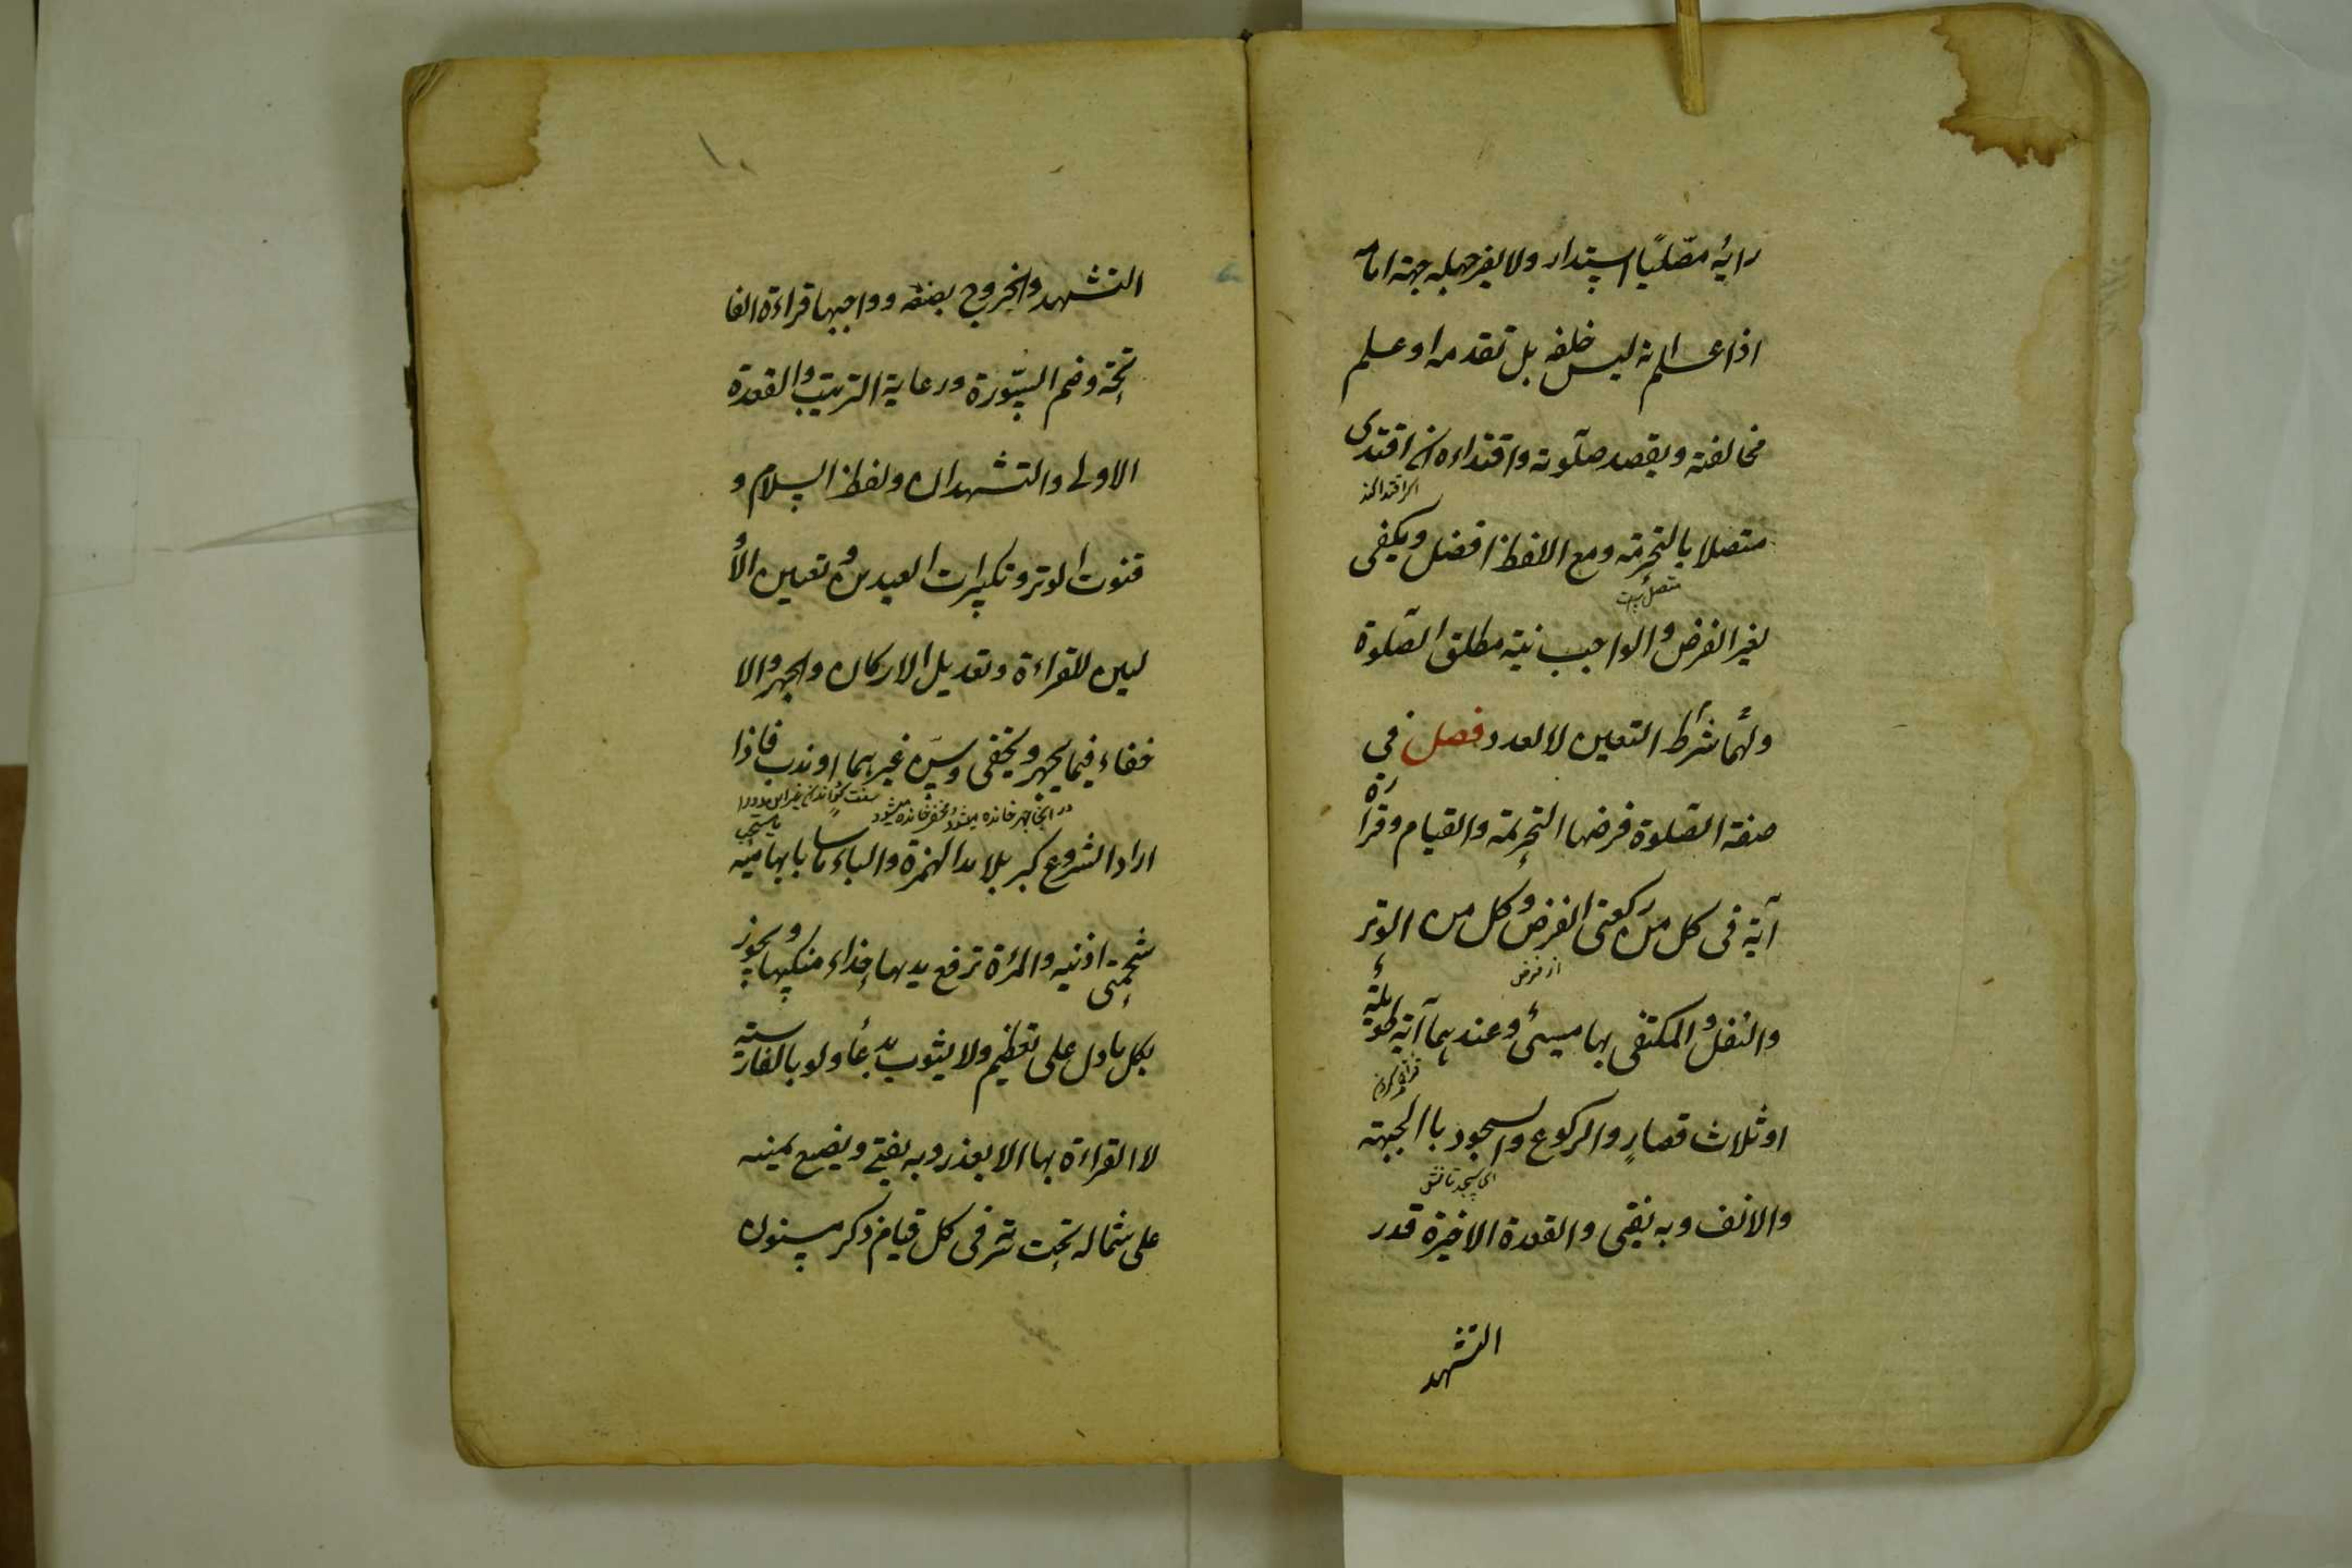 رايه مصليا استدار ولا يضر جهله جهة امامه
اذا علم انه ليس خلفه بل تقدمه او علم
مخالفته ويقصد صلوته واقتداءه ان اقتدى
متصلا بالتحريمة ومع اللفظ افضل ويكفى
لغير الفرض والواجب نية مطلق الصلوة
ولهما شرط التعيين لا العدد فصل فى
صفة الصلوة فرضها التحريمة والقيام وقراءة
آية فى كل من ركعتى الفرض وكل من الوتر
از فرض
والنفل والمكتفى بها مسيئ وعندهما آية طويلة
او ثلاث قصار والركوع والسجود باالجبهة
والانف وبه يفتى والقعدة الاخيرة قدر
التشهد
التشهد والخروج بصنعه وواجبها قراءة الفا
تحة وضم السورة ورعاية الترتيب والقعدة
الاولى والتشهدان ولفظ السلام و
قنوت الوتر وتكبيرات العيدين وتعيين الأو
ليين للقراءة وتعديل الاركان والجهر والا
خفاء فيما يجهر ويخفى وسن غيرهما او ندب فاذا
اراد الشروع كبر بلا مد الهمزة والباء ماسا بابهاميه
شحمتى اذنيه والمرءة ترفع يديها حذاء منكبيها ويجوز
بكل ما دل على تعظيم ولا يشوب بدعأ ولو بالفارسية
لا القراءة بها الا بعذر وبه يفتى ويضع يمينه
على شماله تحت سرته فى كل قيام ذكر مسنون